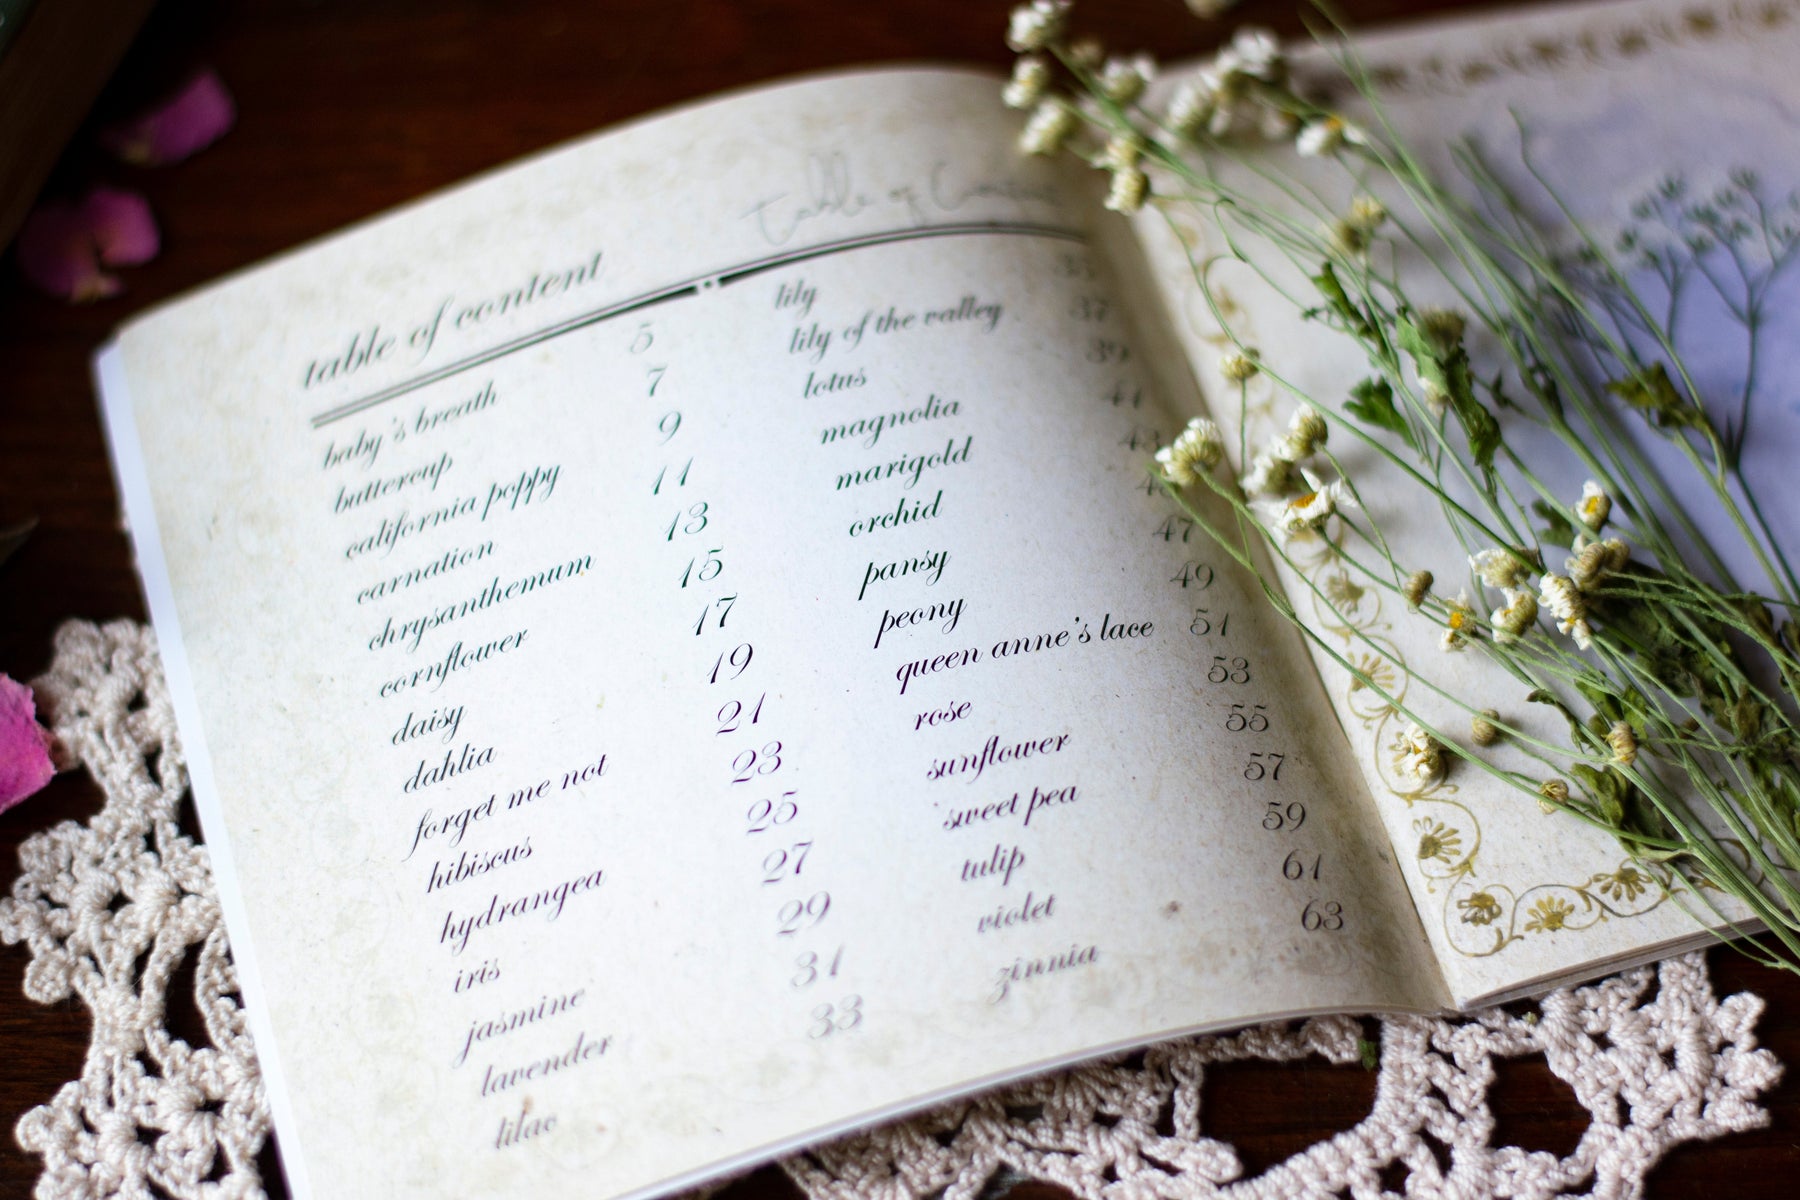 Table of
table of content
baby's breath 5
buttercup 7
california poppy 9
carnation 11
chrysanthemum 13
cornflower 15
daisy 17
dahlia 19
forget me not 21
hibiscus 23
hydrangea 25
iris 27
jasmine 29
lavender 31
lilac 33
lily 35
lily of the valley 37
lotus 39
magnolia 41
marigold 43
orchid
pansy 47
peony 49
queen anne's lace 51
rose 53
sunflower 55
sweet pea 57
tulip 59
violet 61
zinnia 63